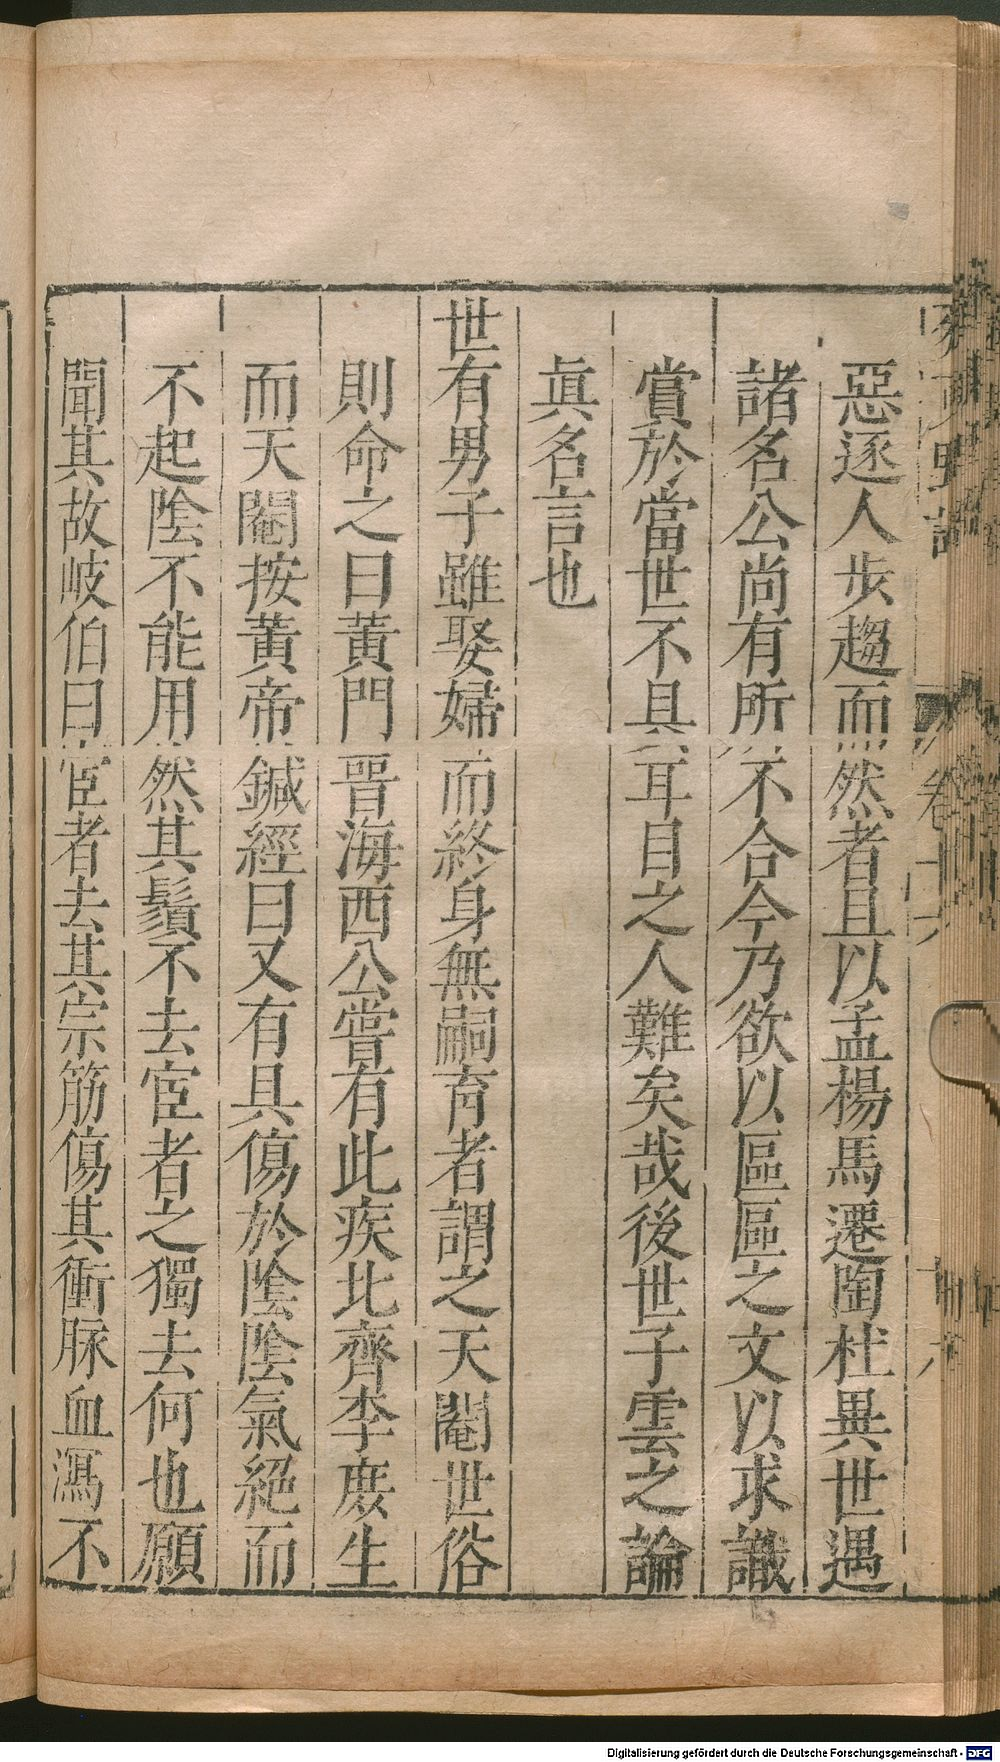 惡逐人步趨而然者且以孟楊馬遷陶杜異世遇
諸名公尚有所不合今乃欲以區區之文以求識
賞於當世不具耳目之人難矣哉後世子雲之論
眞名言也
世有男子雖娶婦而終身無嗣育者謂之天閹世俗
則命之曰黃門晉海西公嘗有此疾北齊李庶生
而天閹按黃帝鍼經曰又有具傷於陰陰氣絕而
不起陰不能用然其鬚不去宦者之獨去何也願
聞其故岐伯曰宦者去其宗筋傷其衝脉血瀉不
卷十六
Digitalisierung gefördert durch die Deutsche Forschungsgemeinschaft - DFG